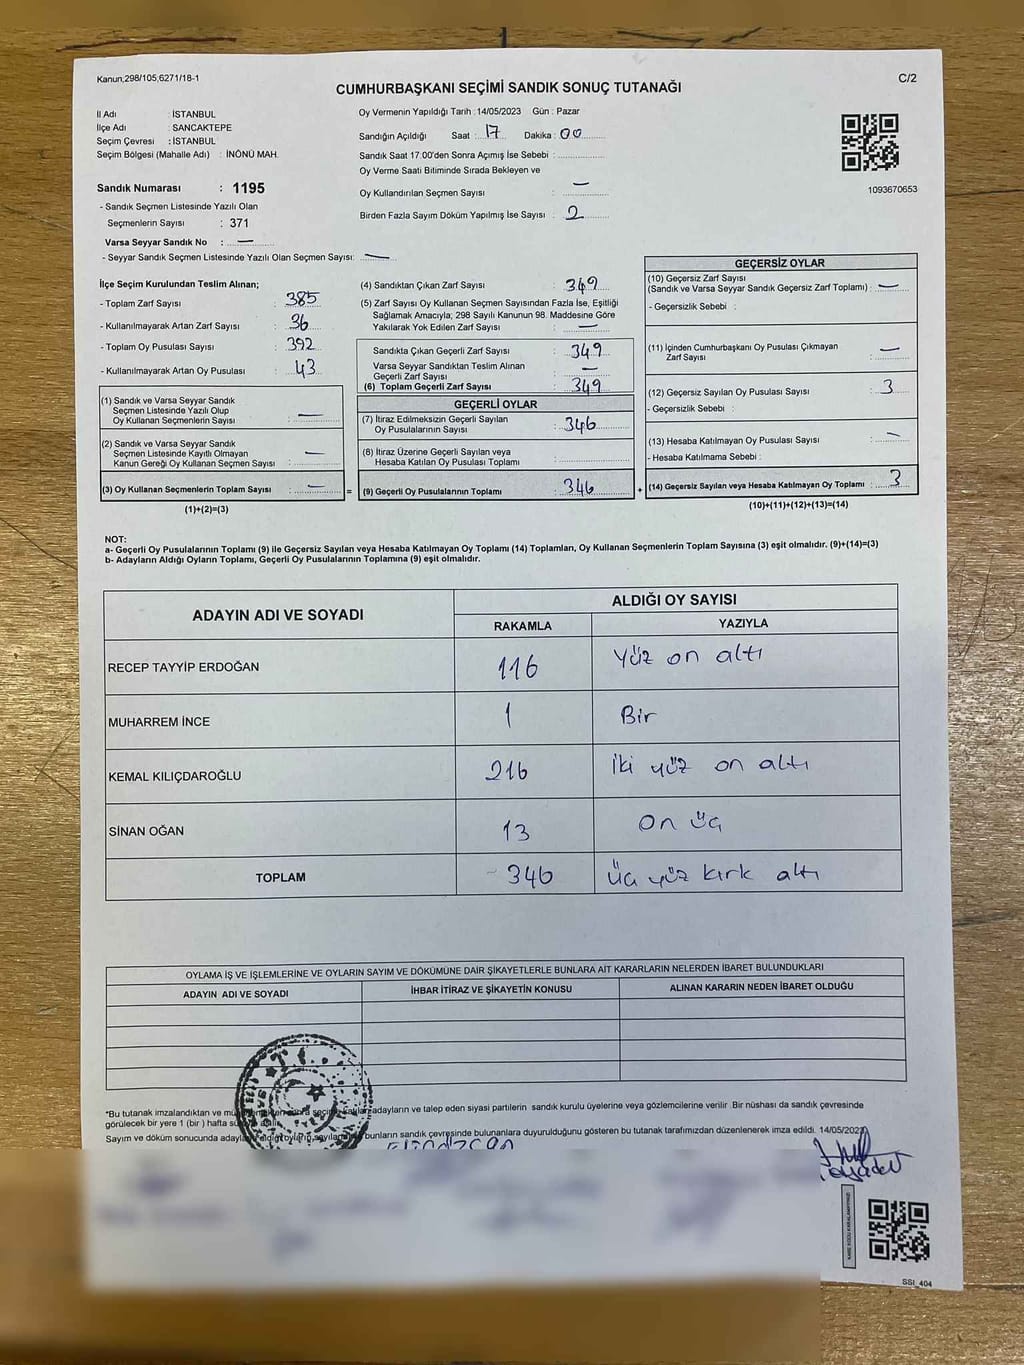 Kanun;298/105,6271/18-1
C/2
CUMHURBAŞKANI SEÇİMİ SANDIK SONUÇ TUTANAĞI
İl Adı : İSTANBUL
İlçe Adı : SANCAKTEPE
Seçim Çevresi : İSTANBUL
Seçim Bölgesi (Mahalle Adı) : İNÖNÜ MAH.
Sandık Numarası : 1195
- Sandık Seçmen Listesinde Yazılı Olan
Seçmenlerin Sayısı : 371
Varsa Seyyar Sandık No : —
- Seyyar Sandık Seçmen Listesinde Yazılı Olan Seçmen Sayısı: —
Oy Vermenin Yapıldığı Tarih : 14/05/2023 Gün : Pazar
Sandığın Açıldığı Saat : 17 Dakika : 00
Sandık Saat 17:00'den Sonra Açımış İse Sebebi :
Oy Verme Saati Bitiminde Sırada Bekleyen ve
Oy Kullandırılan Seçmen Sayısı : —
Birden Fazla Sayım Döküm Yapılmış İse Sayısı : 2
1093670653
İlçe Seçim Kurulundan Teslim Alınan;
- Toplam Zarf Sayısı : 385
- Kullanılmayarak Artan Zarf Sayısı : 36
- Toplam Oy Pusulası Sayısı : 392
- Kullanılmayarak Artan Oy Pusulası : 43
(1) Sandık ve Varsa Seyyar Sandık
Seçmen Listesinde Yazılı Olup
Oy Kullanan Seçmenlerin Sayısı : —
(2) Sandık ve Varsa Seyyar Sandık
Seçmen Listesinde Kayıtlı Olmayan
Kanun Gereği Oy Kullanan Seçmen Sayısı : —
(3) Oy Kullanan Seçmenlerin Toplam Sayısı : —
(1)+(2)=(3)
(4) Sandıktan Çıkan Zarf Sayısı : 349
(5) Zarf Sayısı Oy Kullanan Seçmen Sayısından Fazla İse, Eşitliği
Sağlamak Amacıyla; 298 Sayılı Kanunun 98. Maddesine Göre
Yakılarak Yok Edilen Zarf Sayısı : —
Sandıkta Çıkan Geçerli Zarf Sayısı : 349
Varsa Seyyar Sandıktan Teslim Alınan
Geçerli Zarf Sayısı : —
(6) Toplam Geçerli Zarf Sayısı : 349
GEÇERLİ OYLAR
(7) İtiraz Edilmeksizin Geçerli Sayılan
Oy Pusulalarının Sayısı : 346
(8) İtiraz Üzerine Geçerli Sayılan veya
Hesaba Katılan Oy Pusulası Toplamı :
= (9) Geçerli Oy Pusulalarının Toplamı : 346 +
GEÇERSİZ OYLAR
(10) Geçersiz Zarf Sayısı
(Sandık ve Varsa Seyyar Sandık Geçersiz Zarf Toplamı) : —
- Geçersizlik Sebebi :
(11) İçinden Cumhurbaşkanı Oy Pusulası Çıkmayan
Zarf Sayısı : —
(12) Geçersiz Sayılan Oy Pusulası Sayısı : 3
- Geçersizlik Sebebi :
(13) Hesaba Katılmayan Oy Pusulası Sayısı : —
- Hesaba Katılmama Sebebi :
(14) Geçersiz Sayılan veya Hesaba Katılmayan Oy Toplamı : 3
(10)+(11)+(12)+(13)=(14)
NOT:
a- Geçerli Oy Pusulalarının Toplamı (9) ile Geçersiz Sayılan veya Hesaba Katılmayan Oy Toplamı (14) Toplamları, Oy Kullanan Seçmenlerin Toplam Sayısına (3) eşit olmalıdır. (9)+(14)=(3)
b- Adayların Aldığı Oyların Toplamı, Geçerli Oy Pusulalarının Toplamına (9) eşit olmalıdır.
ADAYIN ADI VE SOYADI ALDIĞI OY SAYISI
RAKAMLA YAZIYLA
RECEP TAYYİP ERDOĞAN 116 Yüz on altı
MUHARREM İNCE 1 Bir
KEMAL KILIÇDAROĞLU 216 İki yüz on altı
SİNAN OĞAN 13 On üç
TOPLAM 346 üç yüz kırk altı
OYLAMA İŞ VE İŞLEMLERİNE VE OYLARIN SAYIM VE DÖKÜMÜNE DAİR ŞİKAYETLERLE BUNLARA AİT KARARLARIN NELERDEN İBARET BULUNDUKLARI
ADAYIN ADI VE SOYADI İHBAR İTİRAZ VE ŞİKAYETİN KONUSU ALINAN KARARIN NEDEN İBARET OLDUĞU
T.C.
*Bu tutanak imzalandıktan ve sonra seçime katılan adayların ve talep eden siyasi partilerin sandık kurulu üyelerine veya gözlemcilerine verilir .Bir nüshası da sandık çevresinde
görülecek bir yere 1 (bir ) hafta asılır.
Sayım ve döküm sonucunda adayların aldığı oyların sayılarının bunların sandık çevresinde bulunanlara duyurulduğunu gösteren bu tutanak tarafımızdan düzenlenerek imza edildi. 14/05/2023
SSI_404